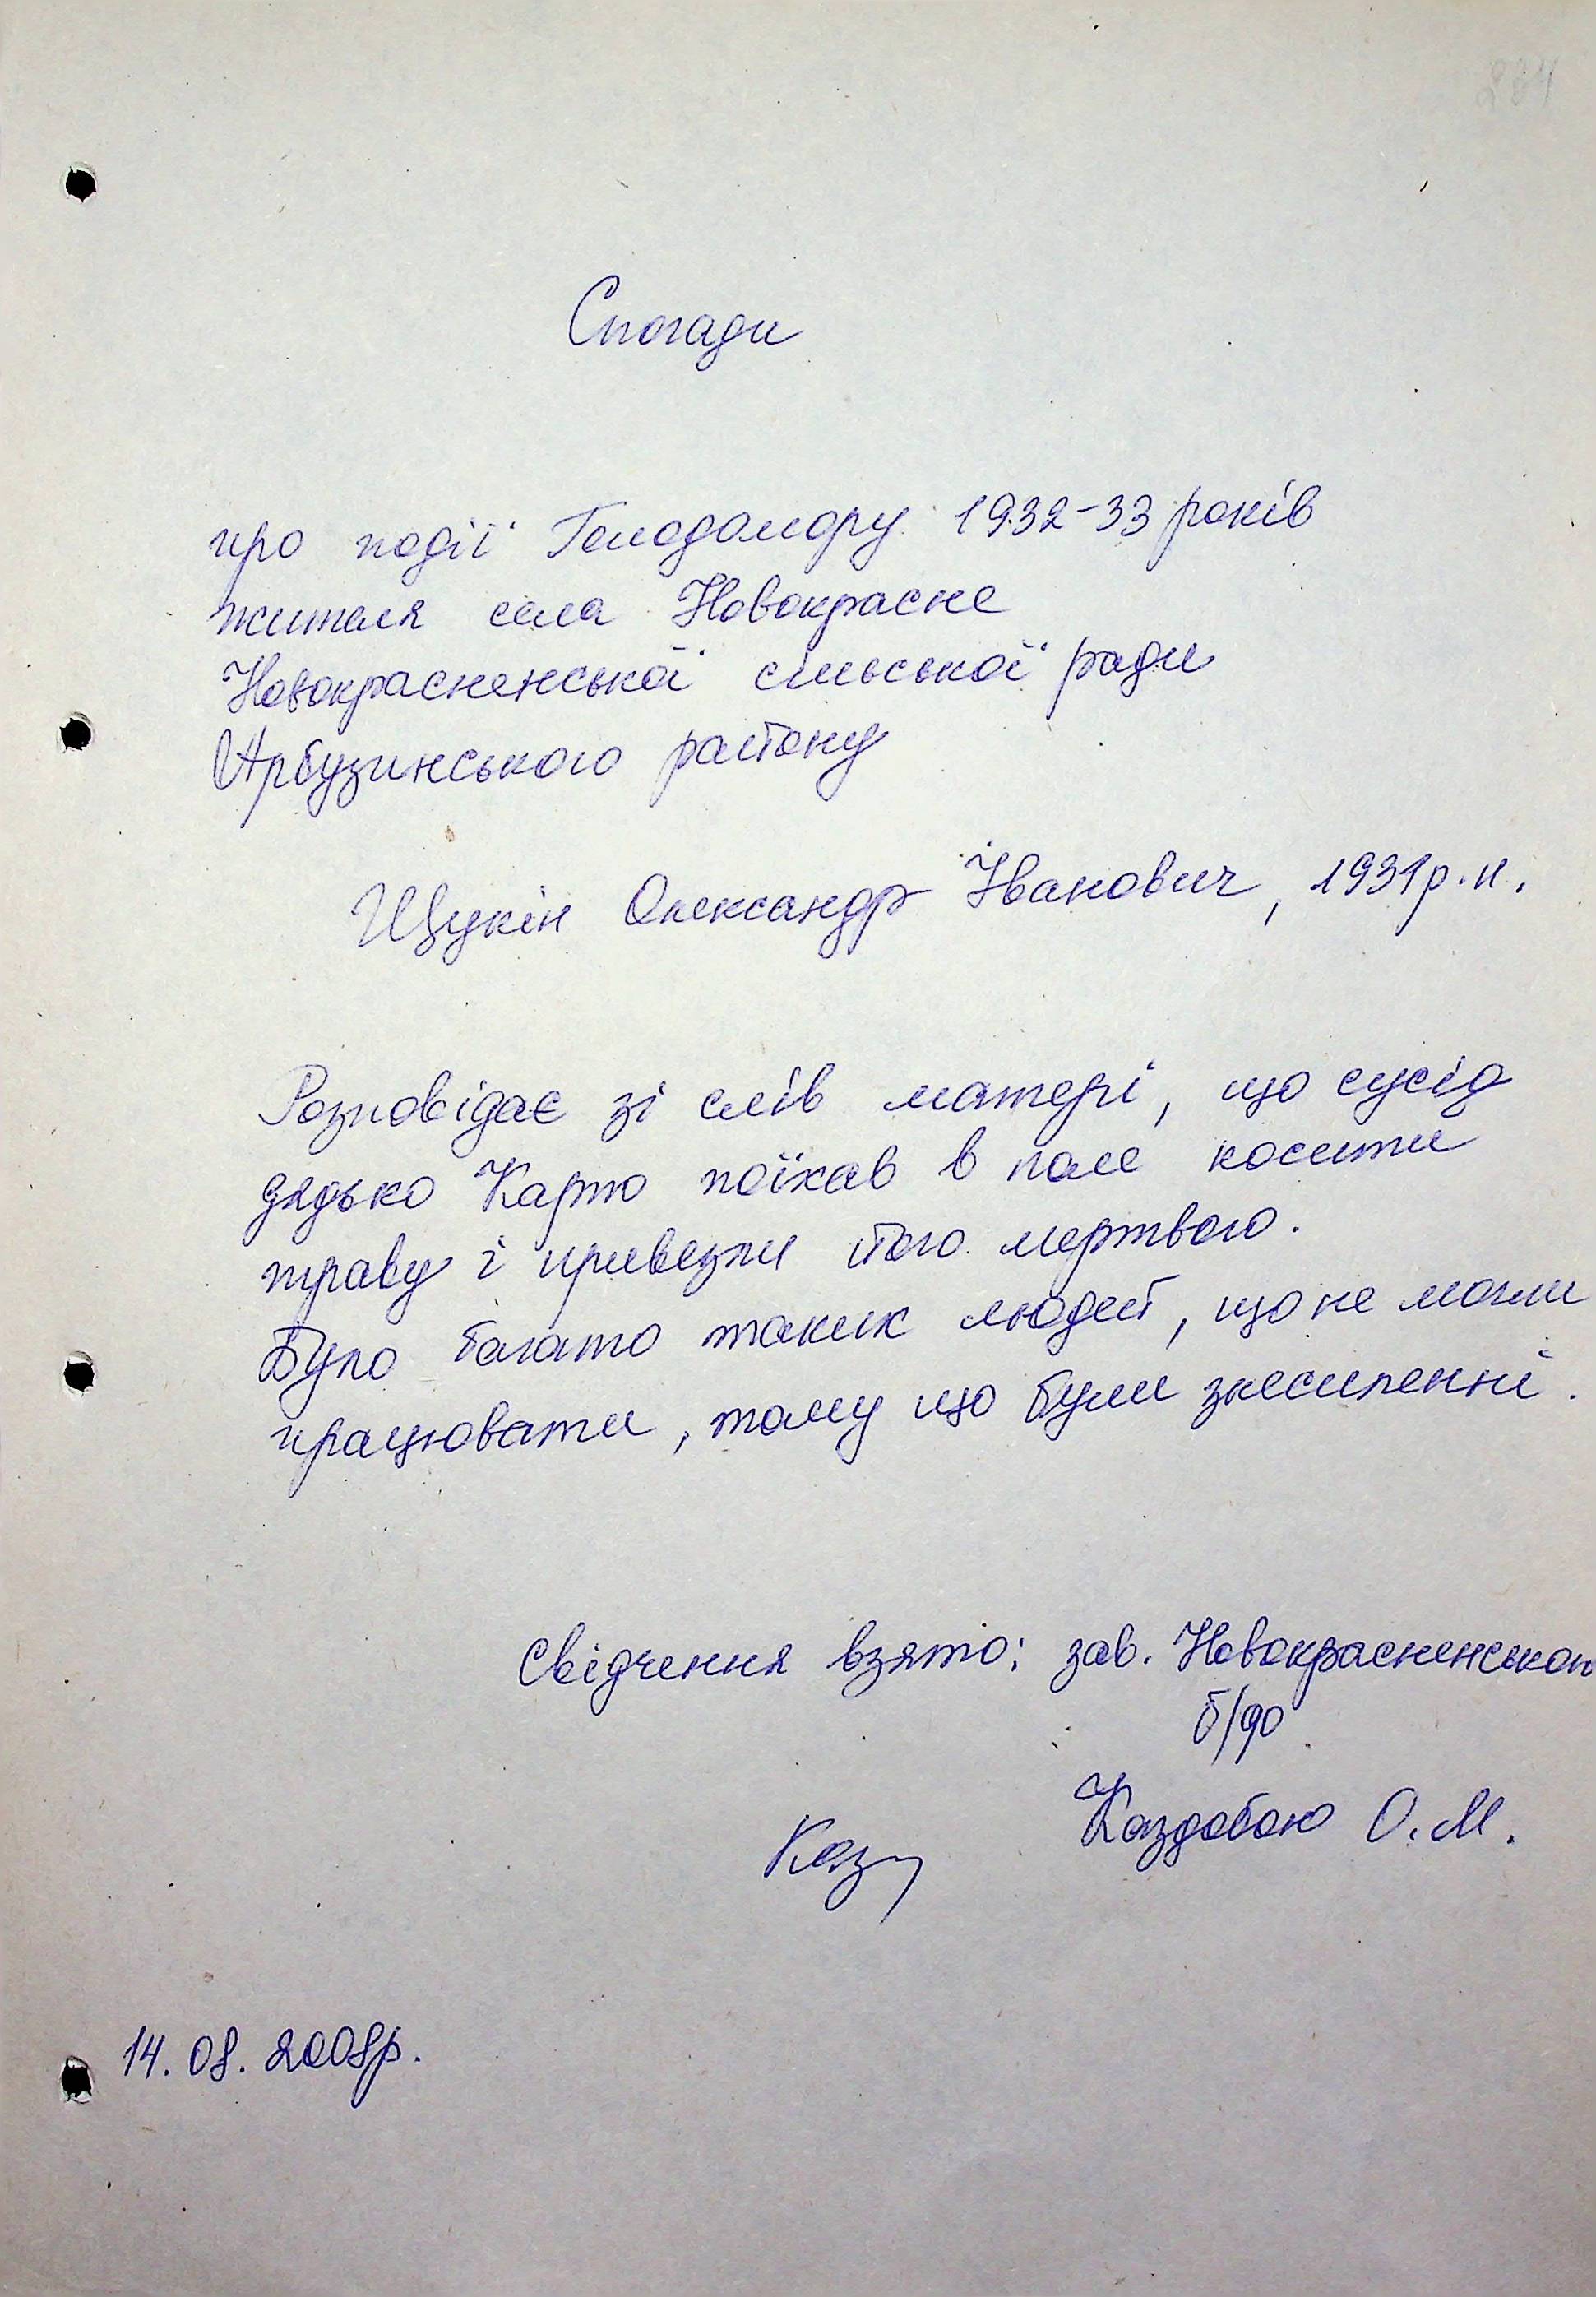 Спогади
про події Голодомору 1932-33 років
жителя села Новокрасне
Новокрасненської сільської ради
Арбузинського району
Щукін Олександр Іванович, 1931р.н.
Розповідає зі слів матері, що сусід
дядько Карпо поїхав в поле косити
траву і привезли його мертвого.
Було багато таких людей, що не могли
працювати, тому що були знесиленні.
Свідчення взято: зав. Новокрасненською
б/ф
Каздобою О.М.
14.08.2008р.